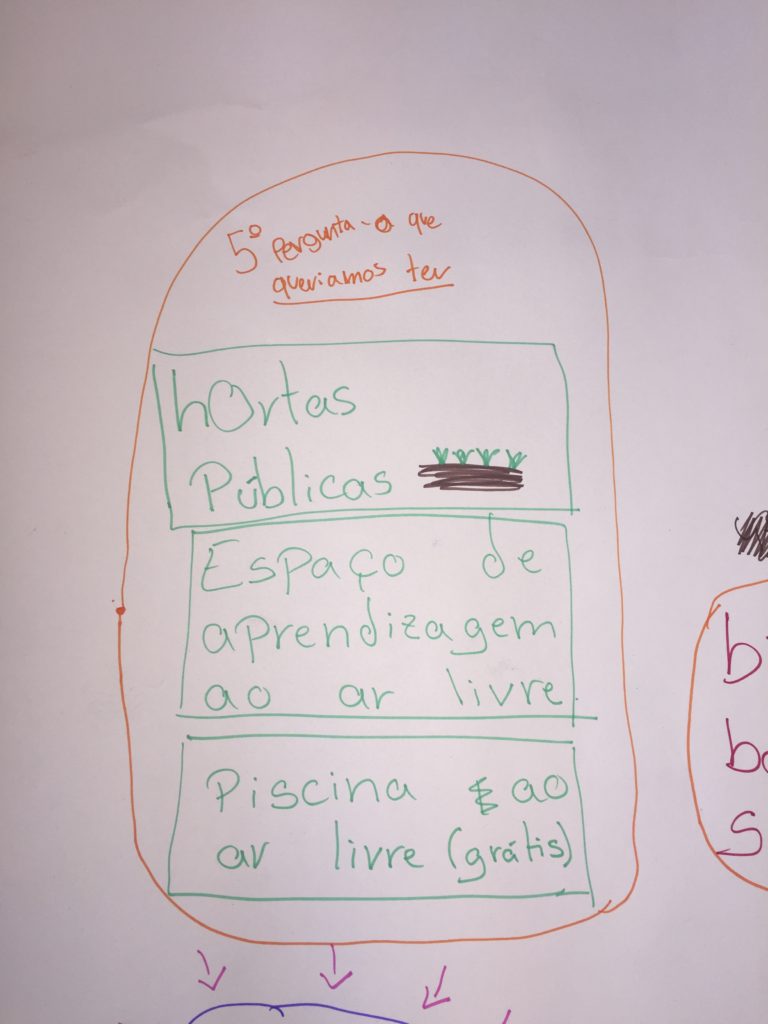 5º Pergunta - o que
queriamos ter
hOrtas
Públicas
Espaço de
aprendizagem
ao ar livre
Piscina ao
ar livre (grátis)
b
S